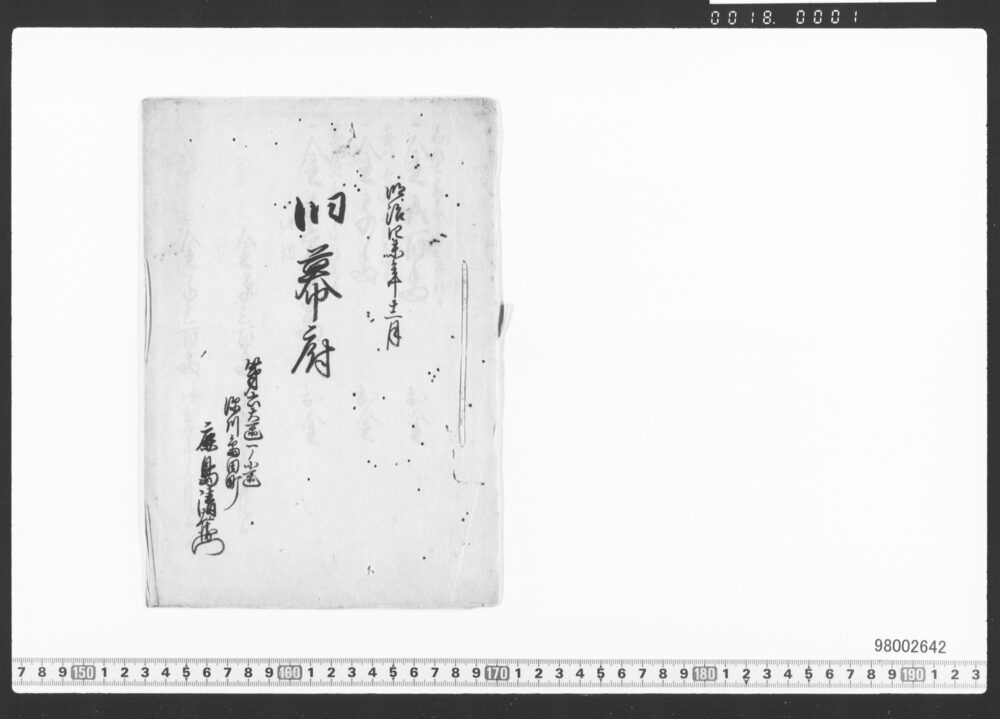 0018. 0001
明治四年十二月
旧幕府
第六大区一ノ小区
深川富田町
鹿島清左衛門
98002642
7 8 9 150 1 2 3 4 5 6 7 8 9 160 1 2 3 4 5 6 7 8 9 170 1 2 3 4 5 6 7 8 9 180 1 2 3 4 5 6 7 8 9 190 1 2 3